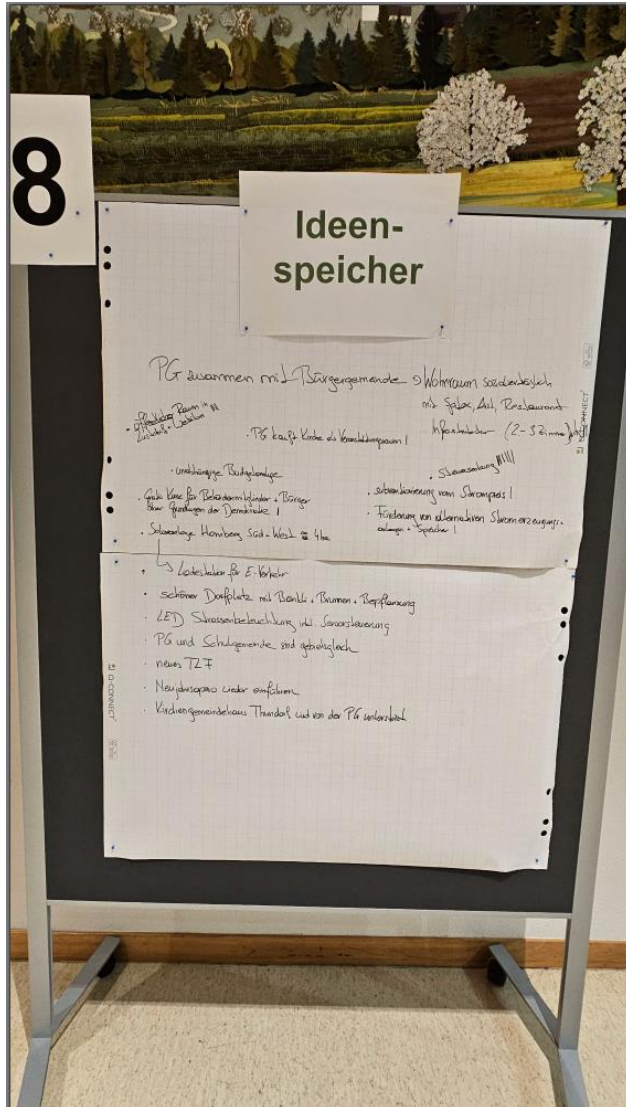 8
Ideen-
speicher
PG zusammen mit Bürgergemeinde → Wohnraum
mit Spitex, Arzt, Restaurant
(2-3 Zimmer)
öffentlicher Raum in
Lustdorf + Wetzikon III
· PG kauft Kirche als Veranstaltungsraum I
· Steuersenkung IIIII
· unabhängige Budgetanalyse
· Gratis Kurse für Behördenmitglieder + Bürger
über Grundlagen der Demokratie I
· Subventionierung vom Strompreis I
· Förderung von alternativen Stromerzeugungs-
anlagen + Speicher I
· Solaranlage Homberg Süd-West ≈ 4ha
↳ Ladestation für E-Verkehr
· schöner Dorfplatz mit Bänkli + Brunnen + Bepflanzung
· LED Strassenbeleuchtung inkl. Sensorsteuerung
· PG und Schulgemeinde sind gebietsgleich
· neues TLF
· Neujahrsapero wieder einführen
· Kirchgemeindehaus Thundorf wird von der PG unterstützt
Q-CONNECT
Q-CONNECT